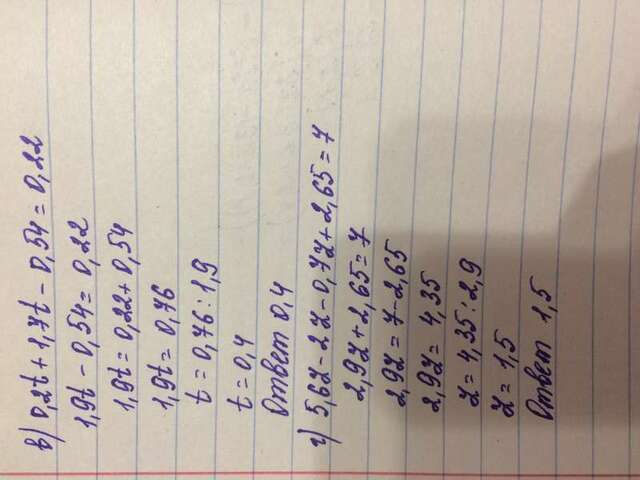 в) 0,2t + 1,7t - 0,54 = 0,22
1,9t - 0,54 = 0,22
1,9t = 0,22 + 0,54
1,9t = 0,76
t = 0,76 : 1,9
t = 0,4
Ответ 0,4
г) 5,6z - 2z - 0,7z + 2,65 = 7
2,9z + 2,65 = 7
2,9z = 7 - 2,65
2,9z = 4,35
z = 4,35 : 2,9
z = 1,5
Ответ 1,5